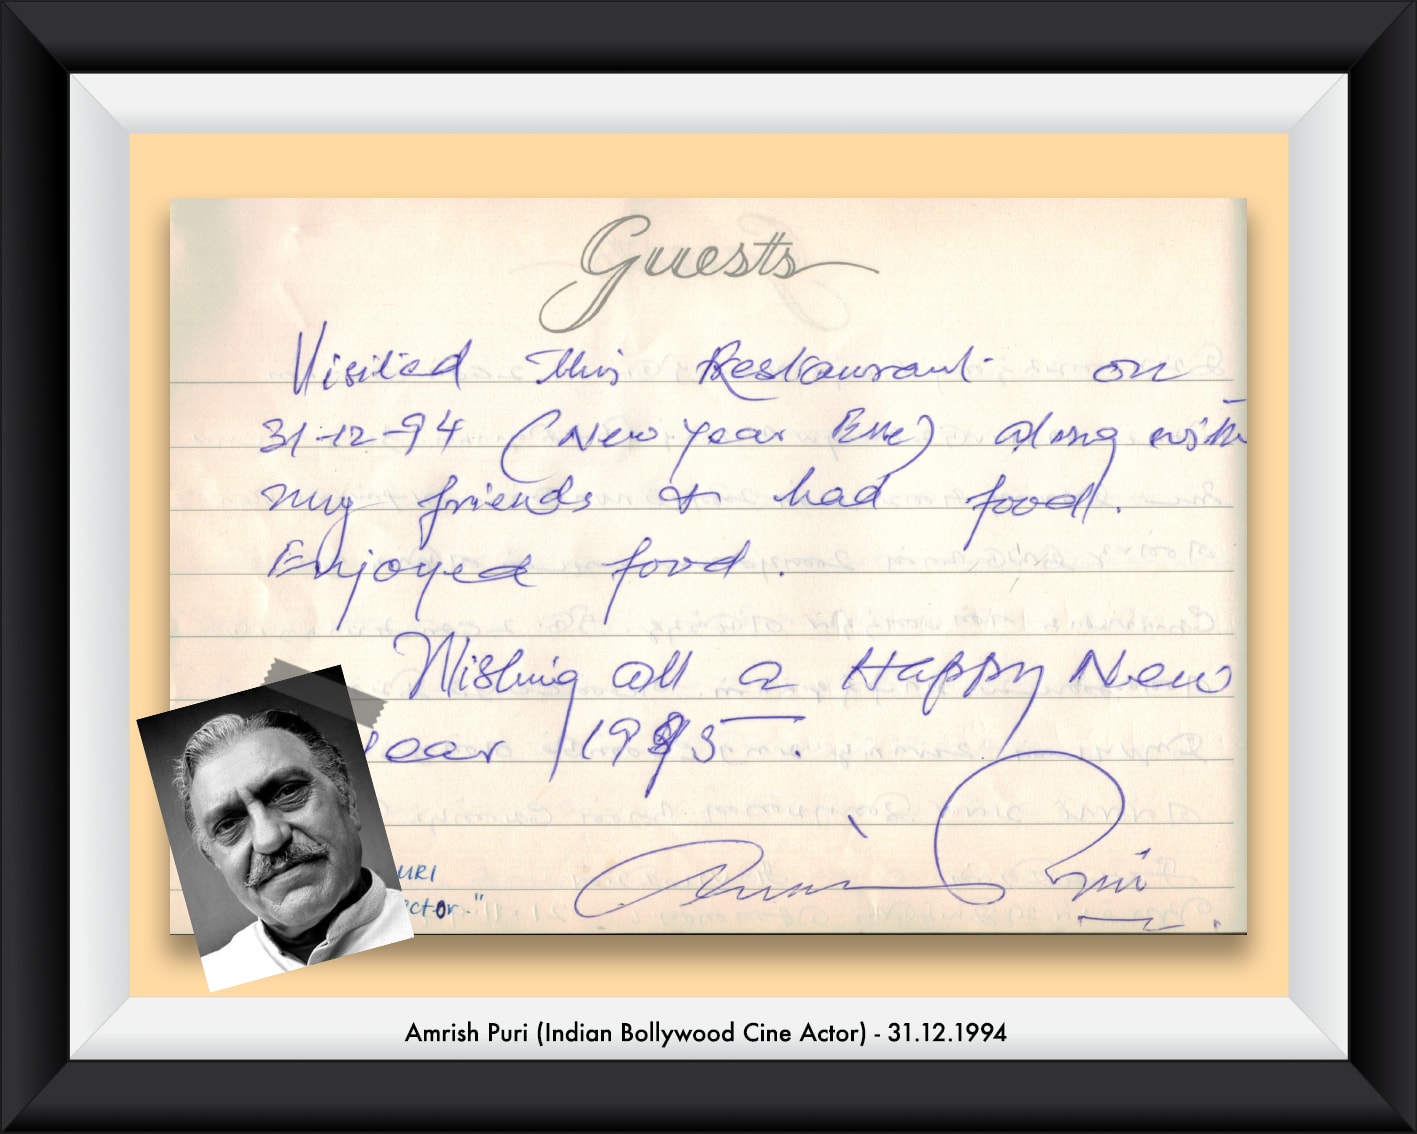 Guests
Visited this Restaurant on
31-12-94 (New year Eve) along with
my friends & had food.
Enjoyed food.
Wishing all a Happy New
year 1995.
Amrish Puri
URI
ctor."
Amrish Puri (Indian Bollywood Cine Actor) - 31.12.1994